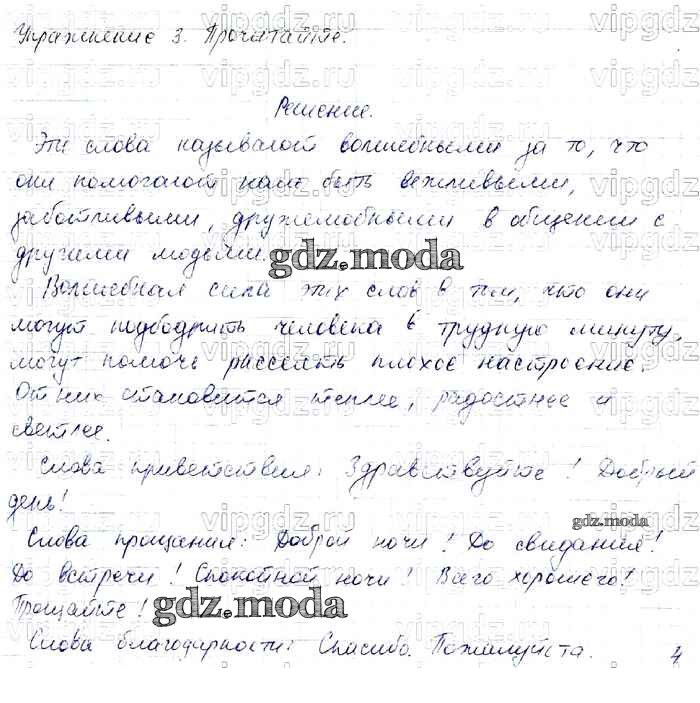 Упражнение 3. Прочитайте.
Решение.
Эти слова называют волшебными за то, что
они помогают нам быть вежливыми,
заботливыми, дружелюбными в общении с
другими людьми.
gdz.moda
Волшебная сила этих слов в том, что они
могут подбодрить человека в трудную минуту,
могут помочь рассеять плохое настроение.
От них становится теплее, радостнее и
светлее.
Слова приветствия: Здравствуйте! Добрый
день!
gdz.moda
Слова прощания: Доброй ночи! До свидания!
До встречи! Спокойной ночи! Всего хорошего!
Прощайте!
gdz.moda
Слова благодарности: Спасибо. Пожалуйста.
4
vipgdz.ru